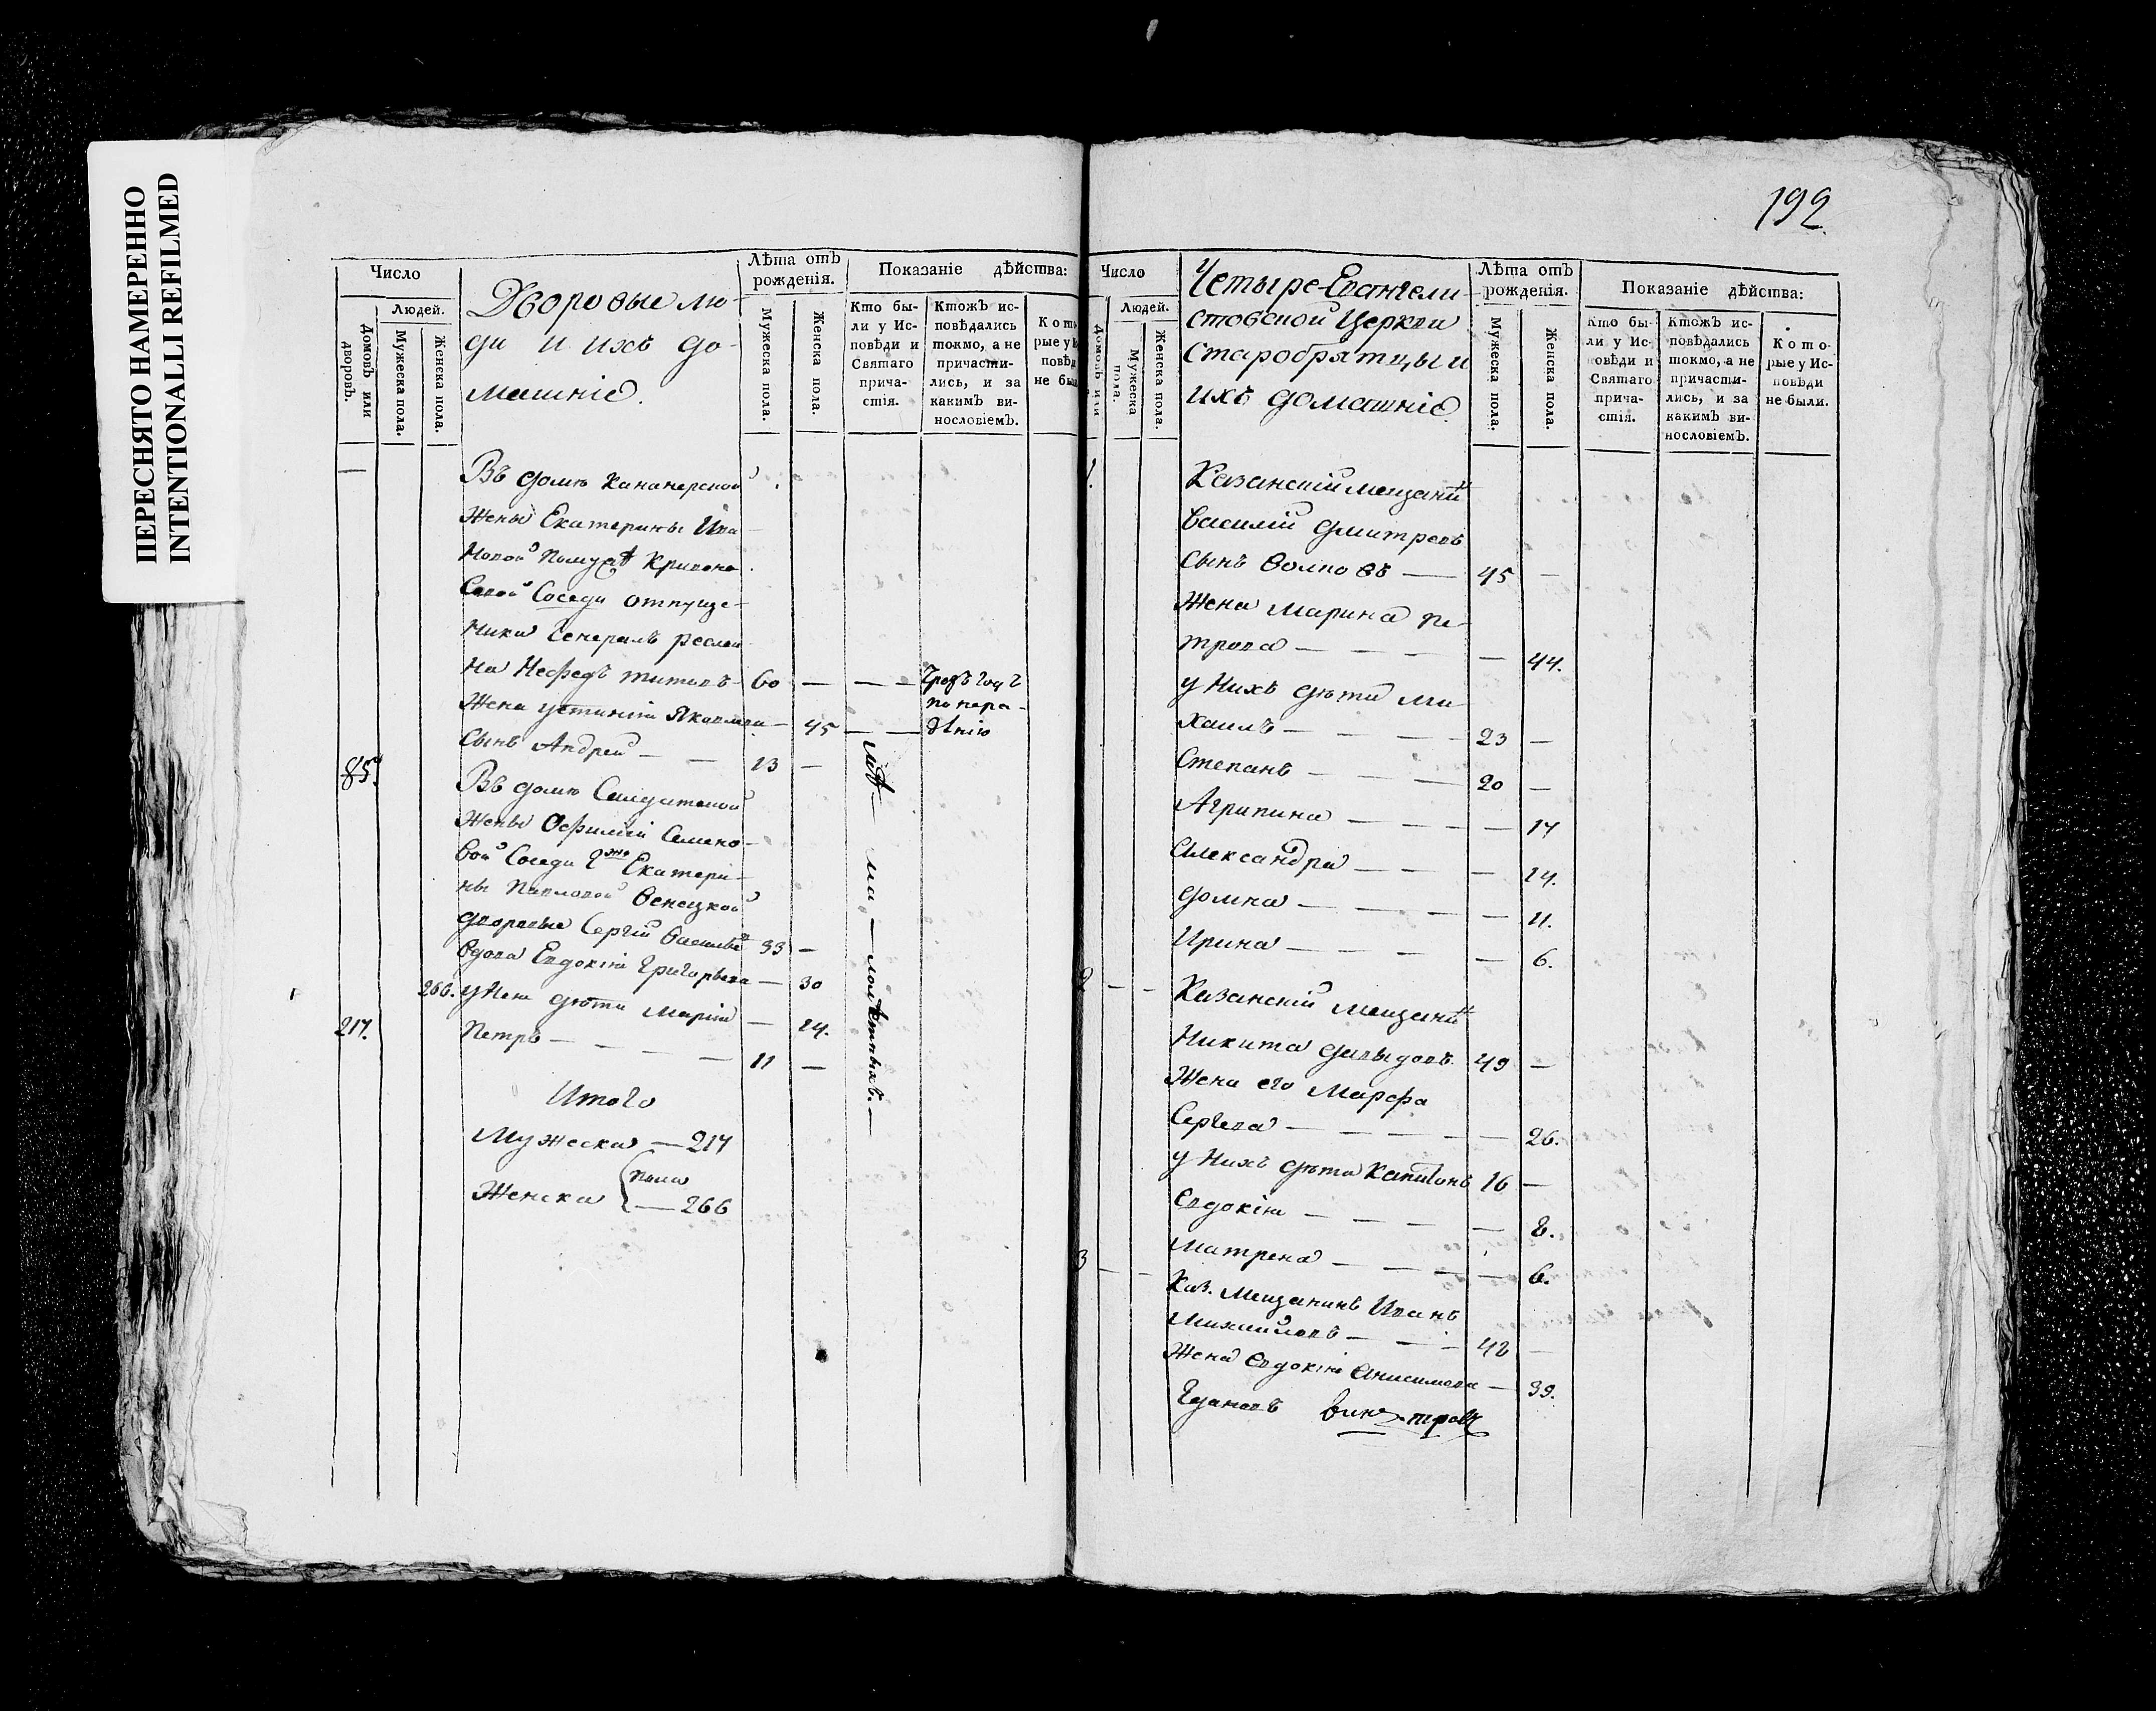 ПЕРЕСНЯТО НАМЕРЕННО
INTENTIONALLI REFILMED
192.
Число
Людей.
Домовъ или дворовъ.
Мужеска пола.
Женска пола.
Дворовые лю-
ди и ихъ до-
машніе.
Лѣта отъ рожденія.
Мужеска пола.
Женска пола.
Показаніе дѣйства:
Кто бы-
ли у Ис-
повѣди и
Святаго
прича-
стія.
Ктожъ ис-
повѣдались
токмо, а не
причасти-
лись, и за
какимъ ви-
нословіемъ.
Кото
рые у И
повѣд
не был
Въ домѣ
Жены Екатерины Ива
новой
Соседи отпуще-
ники Генералъ
на Нефедъ Титовъ 60 — — — Чрезъ годъ
по нера-
Жена Устинія Яковлева — 45 — — дѣнію
Сынъ Андрей — — 13 —
857.
Въ домѣ Салдатской
Жены Ефиміи Семено-
вой Соседи Гжи Екатери-
ны Павловой Венецкой
дворовые Сергій Васильевъ 33 —
Вдова Евдокія Григорьева — 30
266. у нея дѣти Марія — 14.
217. Петръ — — — — 11 —
ма — ло — лѣтныхъ. —
Итого
Мужеска — 217
пола
Женска — 266
Число
Людей.
Домовъ или
Мужеска пола.
Женска пола.
Четыре-Евангели-
стовской Церкви
Старобрятцы и
ихъ домашніе
Лѣта отъ рожденія.
Мужеска пола.
Женска пола.
Показаніе дѣйства:
Кто бы-
ли у Ис-
повѣди и
Святаго
прича-
стія.
Ктожъ ис-
повѣдались
токмо, а не
причасти-
лись, и за
какимъ ви-
нословіемъ.
Кото-
рые у Ис-
повѣди
не были.
1. Казанскій мещанинъ
Василій Дмитревъ
Сынъ Волковъ — 45 —
Жена Марина Пе-
трова — — — — 44.
у нихъ дѣти Ми-
хаилъ — — — 23 —
Степанъ — — — 20 —
Агрипина — — — — 17
Александра — — — 14.
Домна — — — — — 11.
Ирина — — — — 6.
2 — — Казанскій Мещанинъ
Никита Давыдовъ 49 —
Жена его Марфа
Сергева — — — — — 26.
у нихъ дѣти Капитонъ 16 —
Евдокія — — — — 8.
Матрена — — — — 6.
3 — — Каз. Мещанинъ Иванъ
Михайловъ — — — 42 —
Жена Евдокія Анисимова — 39.